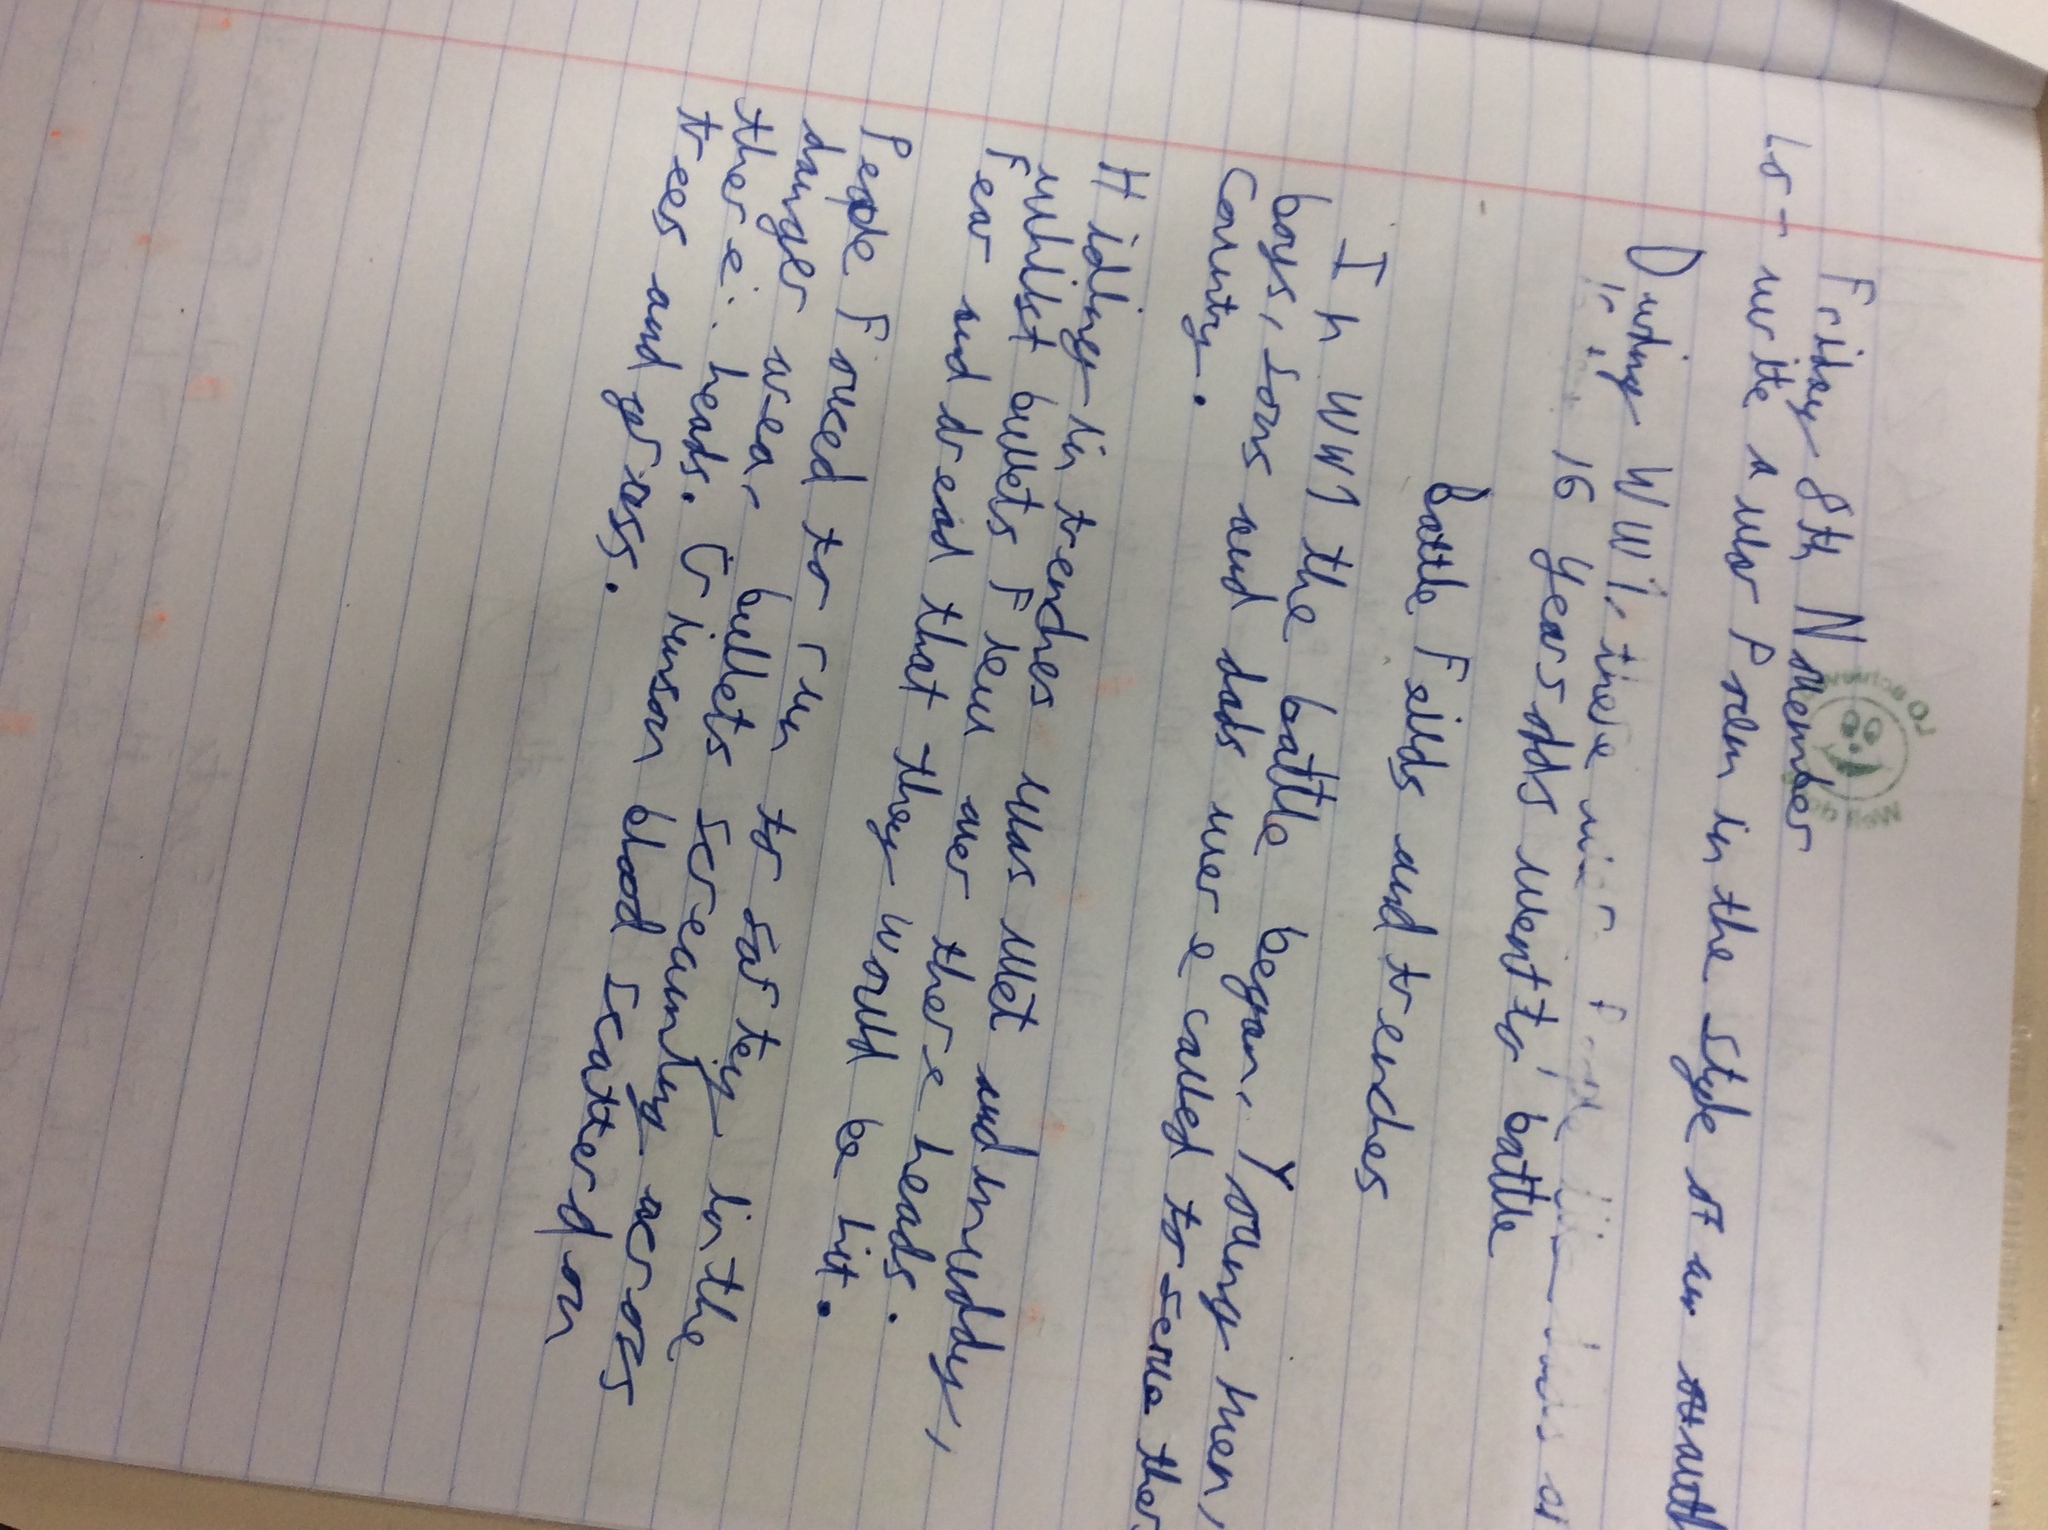 Friday 8th November
Lo - write a war Poem in the style of an
During WW1, there
16 years olds went to battle
Battle Feilds and trenches
In WW1 the battle began, Young men,
boys, sons and dads were called to serve ther
Country.
Hiding in trenches was wet and muddy,
whilst bullets Flew over there heads.
Fear and dread that they would be hit.
Peope Fouced to run to saftey in the
danger area, bullets screaming across
there heads. Crimson blood scatterd on
trees and grass.
LO achieve
Well do